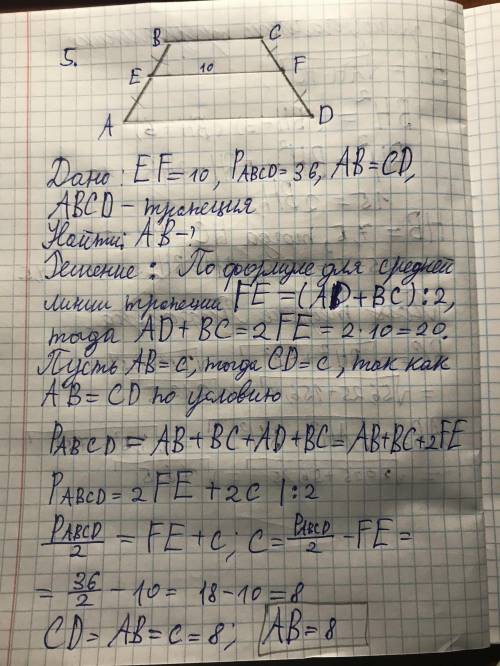 5.
B C
E 10 F
A D
Дано: EF=10, PABCD=36, AB=CD,
ABCD – трапеция
Найти: AB-?
Решение: По формуле для средней
линии трапеции FE=(AD+BC):2,
тогда AD+BC=2FE=2·10=20.
Пусть AB=c; тогда CD=c, так как
AB=CD по условию
PABCD = AB+BC+AD+BC=AB+BC+2FE
PABCD=2FE+2c |:2
PABCD/2 = FE+c; c=PABCD/2 -FE=
= 36/2 -10= 18-10=8
CD=AB=c=8; AB=8